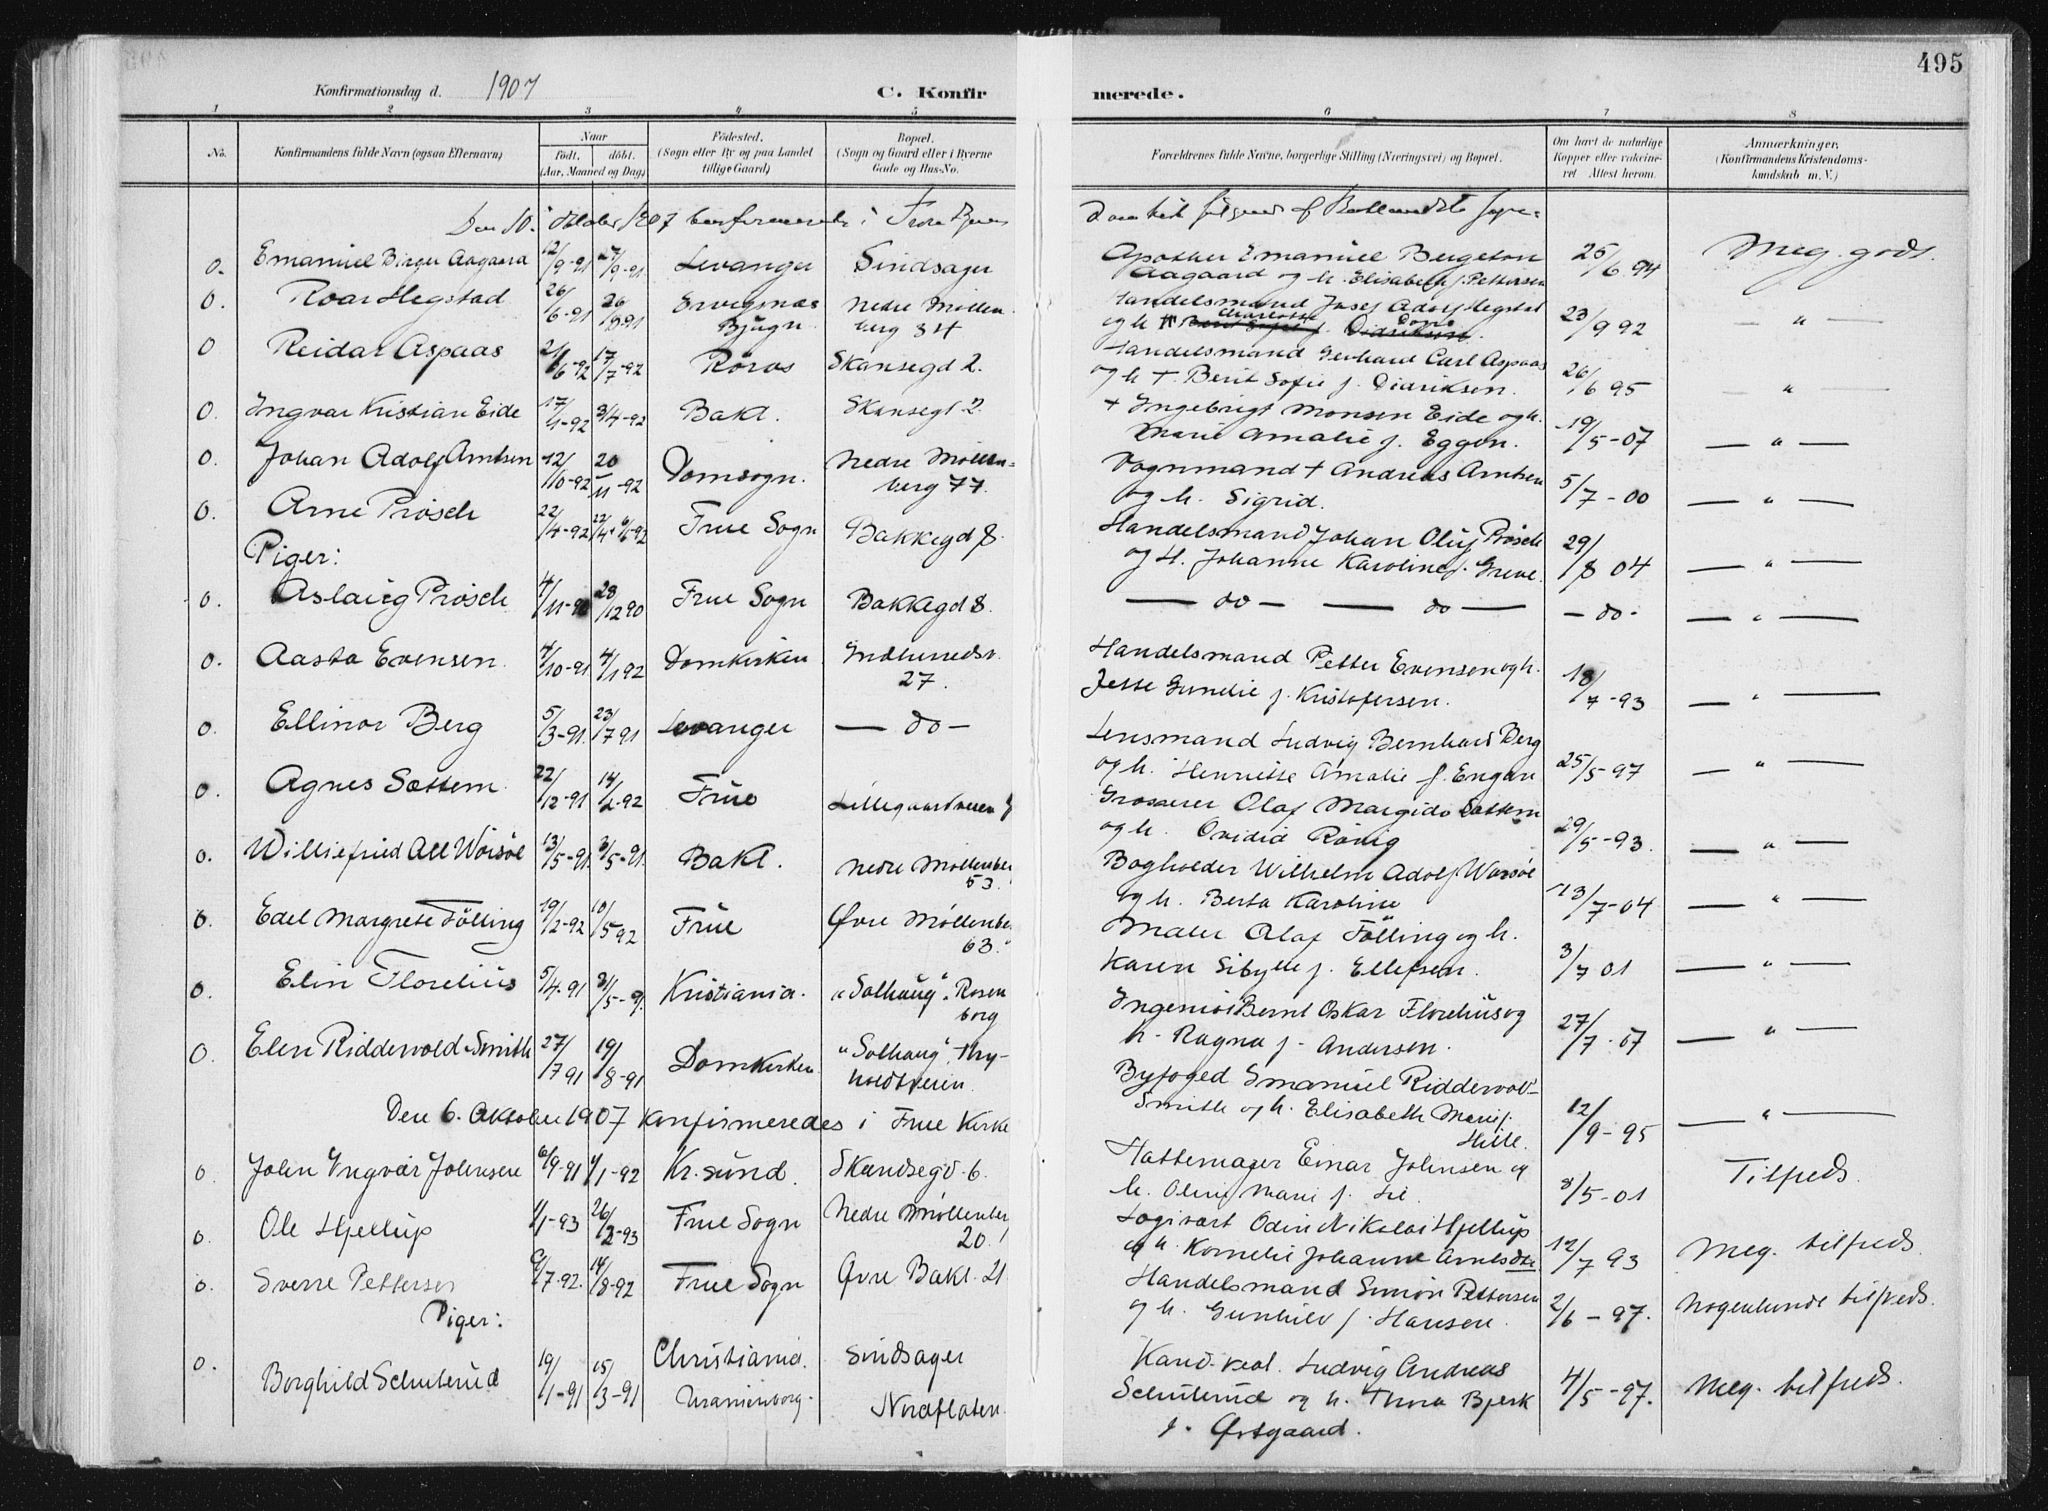 495
Konfirmationsdag d. 1907 C. Konfirmerede.
1 2 3 4 5 6 7 8
No. Konfirmandens fulde Navn (ogsaa Efternavn) Naar født, døbt. (Aar, Maaned og Dag) Fødested. (Sogn eller By og paa Landet tillige Gaard) Bopæl. (Sogn og Gaard eller i Byerne Gade og Hus-No. Forældrenes fulde Navne, borgerlige Stilling (Næringsvei) og Bopæl. Om havt de naturlige Kopper eller vakcineret. Attest herom. Anmærkninger. (Konfirmandens Kristendomskundskab m. V.)
Den 10. Oktober 1907 konfirmerede i
0. Emanuel Birger Aagaard 12/9-91 27/9-91 Levanger Sindsager Apother Emanuel Bergeton 25/6 94 Meg. gods.
Aagaard og h. Elisabeth f. Pettersen
0. Roar Hegstad 26/6-91 26/8-91 Bjugn Nedre Møllenberg 34 Handelsmand Josef Adolf Hegstad 23/9 92 — " —
og h. Charlotte
0 Reidar Aspaas 21/6-92 17/7-92 Röros Skansegd 2. Handelsmand Gerhard Carl Aspaas 26/6 95 "
og h. +. Berit Sofie f. Didriksen.
0. Ingvar Kristian Eide 17/1-92 3/4-92 Bakl. Skansegt 2. + Ingebrigt Monsen Eide og h. 19/5-07 — " —
Marie Amalie f. Eggen.
0. Johan Adolf Arntsen 12/10-92 20/11-92 Domsogn. Nedre Møllenberg 77. Vognmand + Andreas Arntsen 5/7-00 — " —
og h. Sigrid.
0. Arne Prösch 22/4-92 Frue Sogn Bakkegd 8. Handelsmand Johan Oluf Prösch 29/8 04 — " —
og H. Johanne Karoline f. Greve.
Piger:
0. Aslaug Prösch 4/11-90 28/12 90 Frue Sogn Bakkegd 8. — do — — do — — do - — " —
0. Aasta Evensen. 4/10-91 4/1 92 Domkirken Indherredsv. 27. Handelsmand Petter Evensen og h. 18/7-93 — " —
Jette Gunelie f. Kristofersen.
0. Ellinor Berg 5/3-91. 23/7 91 Levanger — do — Lensmand Ludvig Bernhard Berg 25/5-97 — " —
og h. Henriette Amalie f. Engan
0. Agnes Sættem 22/12-91 14/2-92 Frue Lillegaardsveien Grosserer Olaf Margido Sættem 29/5-93 — " —
og h. Ovidia Rönig
0. Williefried All Worsöe 13/5-91 3/5-91. Bakl. Nedre Møllenber 53. Bogholder Wilhelm Adolf Worsöe 13/7-04 — " —
og h. Berta Karoline
0. Edel Margrete Fölling 19/2-92 10/5 92 Frue Øvre Møllenbe 63. Maler Olaf Fölling og h. 3/7 01 — " —
Karen Sibylle f. Ellefsen.
0. Elin Florelius 5/4-91 31/5-91 Kristiania. "Solhaug". Rosenborg Ingeniør Bernt Oskar Florelius og 27/7-07 — " —
h. Ragna f. Andersen.
0. Elen Riddervold-Smith 27/7 91 19/8-91 Domkirken "Solhaug", Thyholdtveien. Byfoged Emanuel Riddervold-Smith og h. Elisabeth Marie f. Hille. 12/9-95 — " —
Den 6. Oktober 1907 konfirmeredes i Frue Kirke
0. John Ingvar Johnsen 6/9-91 1/1-92 Kr.sund. Skandsegd. 6. Hattemager Einar Johnsen og 8/5-01 Tilfreds.
h. Oline Marie f. Lie.
0. Ole Hjellup 1/1-93 26/2-93 Frue Sogn Nedre Møllenber 20. Logivert Odin Nikolai Hjellup 12/7 93 Meg. tilfreds.
og h. Kornelie Johanne Arntsdtr.
0. Sverre Pettersen 6/7-92. 14/8-92 Frue Sogn Øvre Bakl. 21 Handelsmand Simon Pettersen 2/6-97. Nogenlunde tilfreds.
og h. Gunhild f. Hansen.
Piger:
0. Borghild Schulerud 19/1-91 15/3-91 Christiania. Uranienborg. Sindsager Nordflaten. Kand. real. Ludvig Andreas 4/5-97. Meg. tilfreds.
Schulerud og h. Thora Bjerk
f. Østgaard.